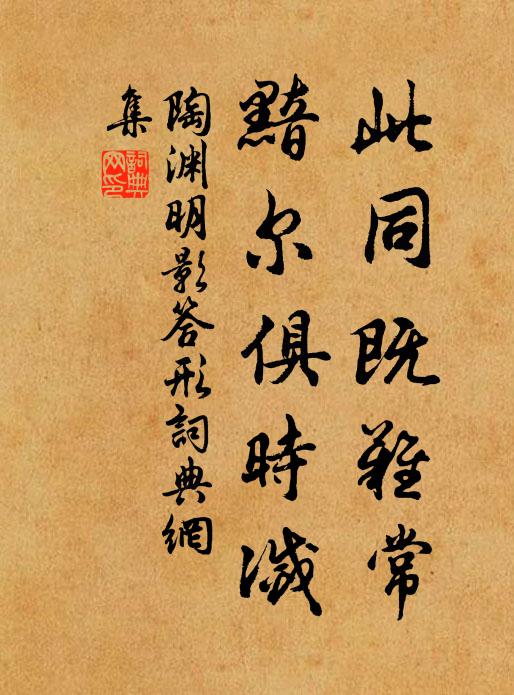 此同既難常
黯尔俱時滅
陶渊明影答形詞典網
集
詞典
网印